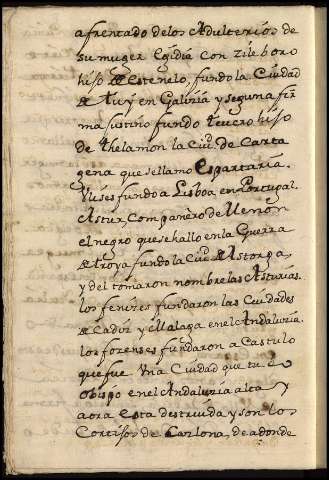 afrentado de los Adulterios de
su muger Egidia con Zileboro
hijo de Estenelo, fundo la Ciudad
de Tuy en Galizia y segun afir
ma Justino fundo teucro hijo
de thelamon la Ciu.d de Carta
gena que se llamo Espartaria.
Ulises fundo a Lisboa, en Portugal.
Astur, Companero de Memon
el negro que se hallo en la Guerra
de troya fundo la Ciud de Astorga,
y del tomaron nombre las Asturias.
los fenizes fundaron las Ciudades
de Cadiz y Malaga en el Andaluzia.
los forenses fundaron a Castulo
que fue Una Ciudad que tubo
Obispo en el Andaluzia alta y
aora esta destruida y son los
Cortijos de Carlona, de adonde